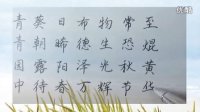 青青园中
葵朝露待
日晞阳春
布德泽万
物生光辉
常恐秋节
至焜黄华